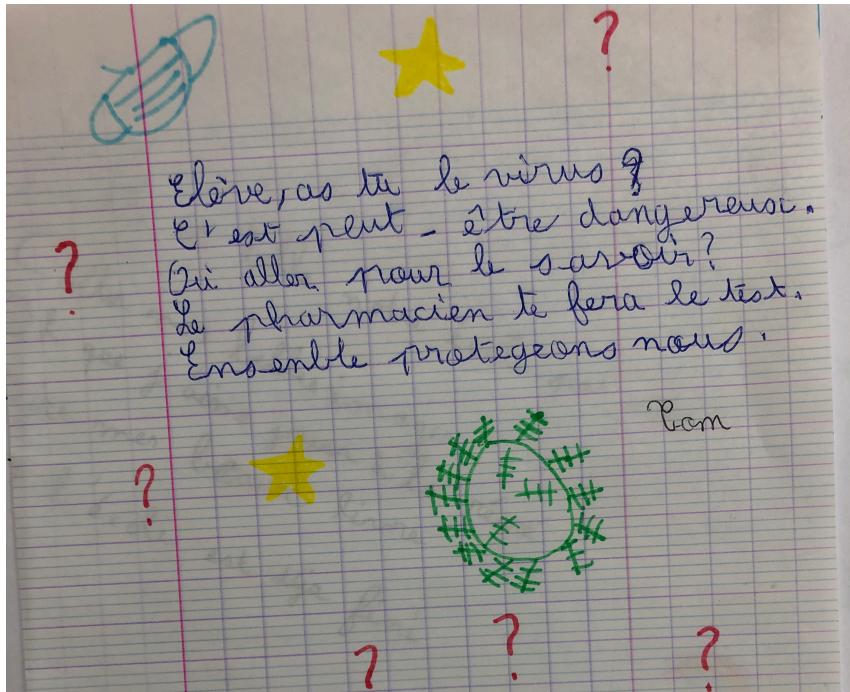 ?
Elève, as tu le virus ?
C'est peut-être dangereux.
?
Où aller pour le savoir ?
Le pharmacien te fera le test.
Ensenble protegeons nous.
Tom
?
?
?
?